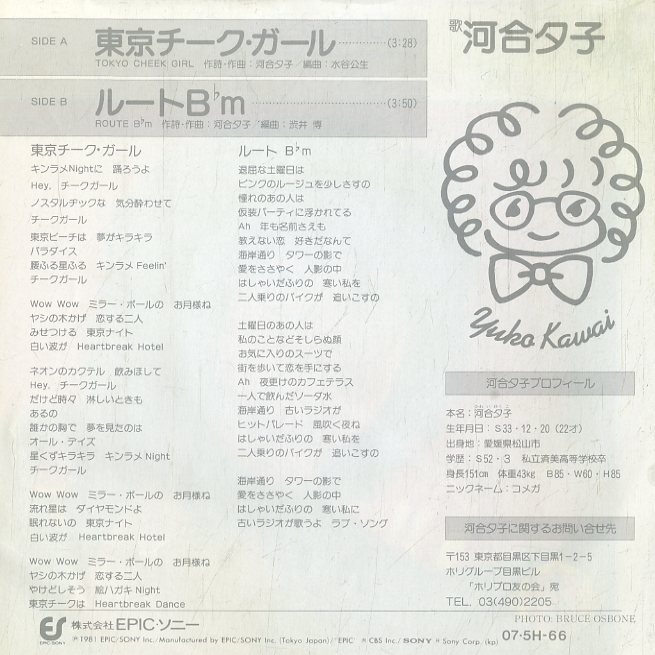 SIDE A 東京チーク・ガール (3:28)
TOKYO CHEEK GIRL 作詩・作曲：河合夕子／編曲：水谷公生
SIDE B ルートB♭m (3:50)
ROUTE B♭m 作詩・作曲：河合夕子／編曲：渋井 博
歌 河合夕子
東京チーク・ガール
キンラメNightに 踊ろうよ
Hey, チークガール
ノスタルヂックな 気分酔わせて
チークガール
東京ビーチは 夢がキラキラ
パラダイス
腰ふる星ふる キンラメ Feelin'
チークガール
Wow Wow ミラー・ボールの お月様ね
ヤシの木かげ 恋する二人
みせつける 東京ナイト
白い波が Heartbreak Hotel
ネオンのカクテル 飲みほして
Hey, チークガール
だけど時々 淋しいときも
あるの
誰かの胸で 夢を見たのは
オール・デイズ
星くずキラキラ キンラメ Night
チークガール
Wow Wow ミラー・ボールの お月様ね
流れ星は ダイヤモンドよ
眠れないの 東京ナイト
白い波が Heartbreak Hotel
Wow Wow ミラー・ボールの お月様ね
ヤシの木かげ 恋する二人
やけどしそう 絵ハガキ Night
東京チークは Heartbreak Dance
ルート B♭m
退屈な土曜日は
ピンクのルージュを少しさすの
憧れのあの人は
仮装パーティに浮かれてる
Ah 年も名前さえも
教えない恋 好きだなんて
海岸通り タワーの影で
愛をささやく 人影の中
はしゃいだふりの 寒い私を
二人乗りのバイクが 追いこすの
土曜日のあの人は
私のことなどそしらぬ顔
お気に入りのスーツで
街を歩いて恋を手にする
Ah 夜更けのカフェテラス
一人で飲んだソーダ水
海岸通り 古いラジオが
ヒットパレード 風吹く夜ね
はしゃいだふりの 寒い私を
二人乗りのバイクが 追いこすの
海岸通り タワーの影で
愛をささやく 人影の中
はしゃいだふりの 寒い私に
古いラジオが歌うよ ラブ・ソング
Yuko Kawai
河合夕子プロフィール
本名：河合夕子
生年月日：S33・12・20（22才）
出身地：愛媛県松山市
学歴：S52・3 私立済美高等学校卒
身長151cm 体重43kg B85・W60・H85
ニックネーム：コメガ
河合夕子に関するお問い合せ先
〒153 東京都目黒区下目黒1-2-5
ホリグループ目黒ビル
「ホリプロ友の会」宛
TEL. 03(490)2205
PHOTO: BRUCE OSBONE
ES EPIC/SONY 株式会社EPIC・ソニー
07・5H-66
Ⓟ1981 EPIC/SONY Inc./Manufactured by EPIC/SONY Inc. (Tokyo Japan)/"EPIC" ® CBS Inc./SONY ® Sony Corp. (kp)